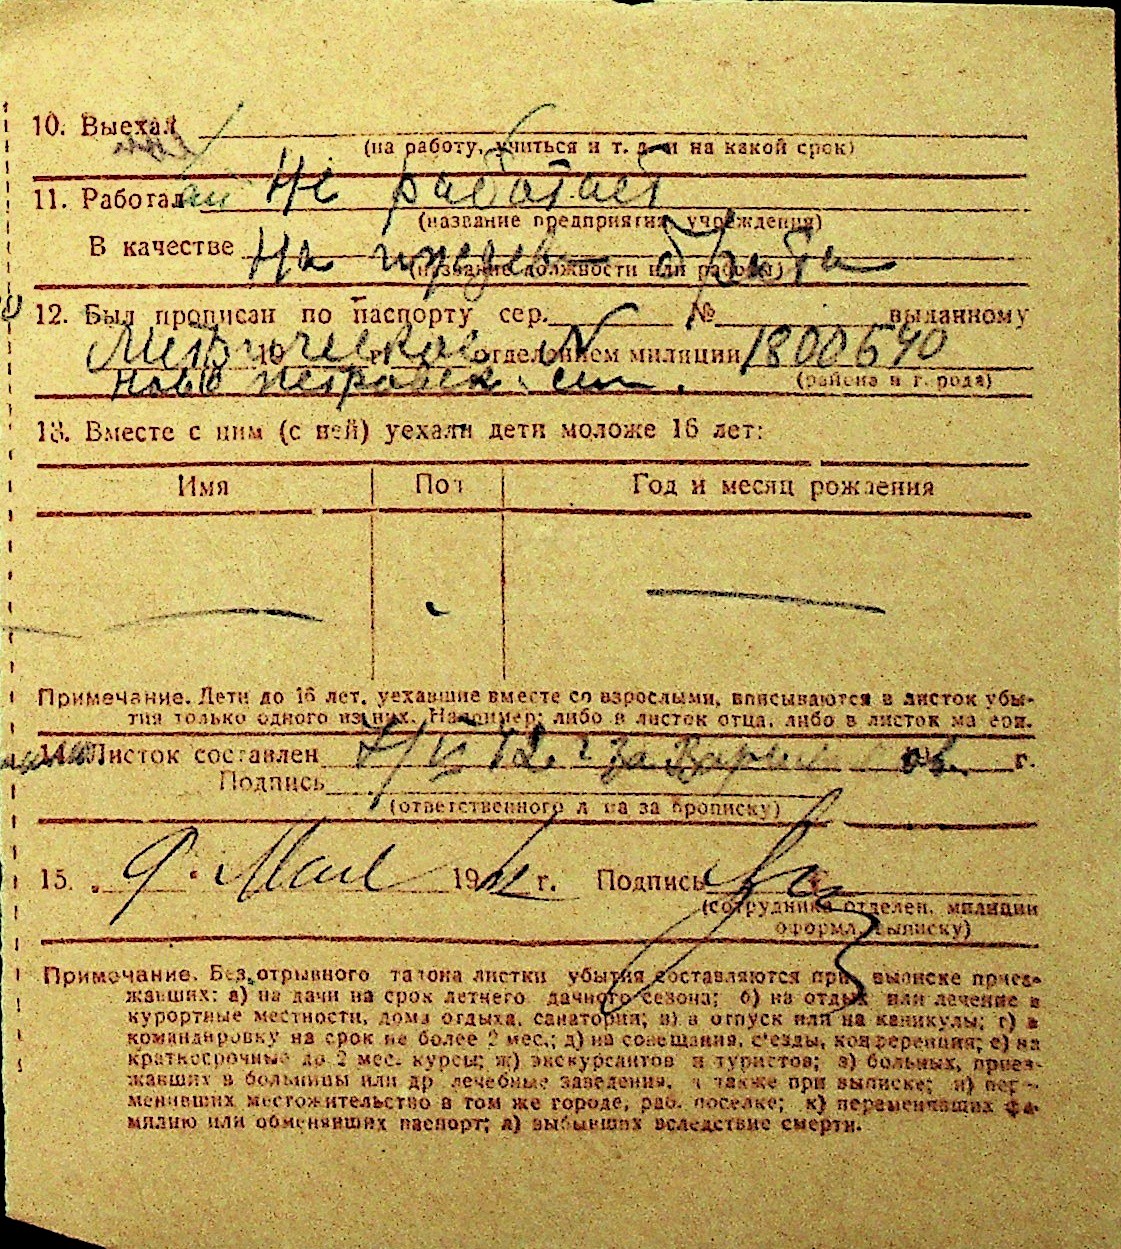 10. Выехал
(на работу, учиться и т. д. и на какой срок)
11. Работал Не работает
(название предприятия, учреждения)
В качестве На иждев брата
(название должности или работы)
12. Был прописан по паспорту сер. № выданному
Метрическое 19 г. отделением милиции N 1800640
Ново Петровск. (района и города)
13. Вместе с ним (с ней) уехали дети моложе 16 лет:
Имя Пол Год и месяц рождения
Примечание. Дети до 16 лет, уехавшие вместе со взрослыми, вписываются в листок убы-
тия только одного из них. Например: либо в листок отца, либо в листок матери.
14. Листок составлен г.
Подпись
(ответственного лица за прописку)
15. „ 9 " Мая 19 г. Подпись
(сотрудника отделен. милиции
оформл. выписку)
Примечание. Без отрывного талона листки убытия составляются при выписке приез-
жавших: а) на дачи на срок летнего дачного сезона; б) на отдых или лечение в
курортные местности, дома отдыха, санатория; в) в отпуск или на каникулы; г) в
командировку на срок не более 2 мес.; д) на совещания, съезды, конференция; е) на
краткосрочные до 2 мес. курсы; ж) экскурсантов и туристов; з) больных, приез-
жавших в больницы или др лечебные заведения, а также при выписке; и) пер-
менивших местожительство в том же городе, раб. поселке; к) переменивших фа-
милию или обменявших паспорт; л) выбывших вследствие смерти.